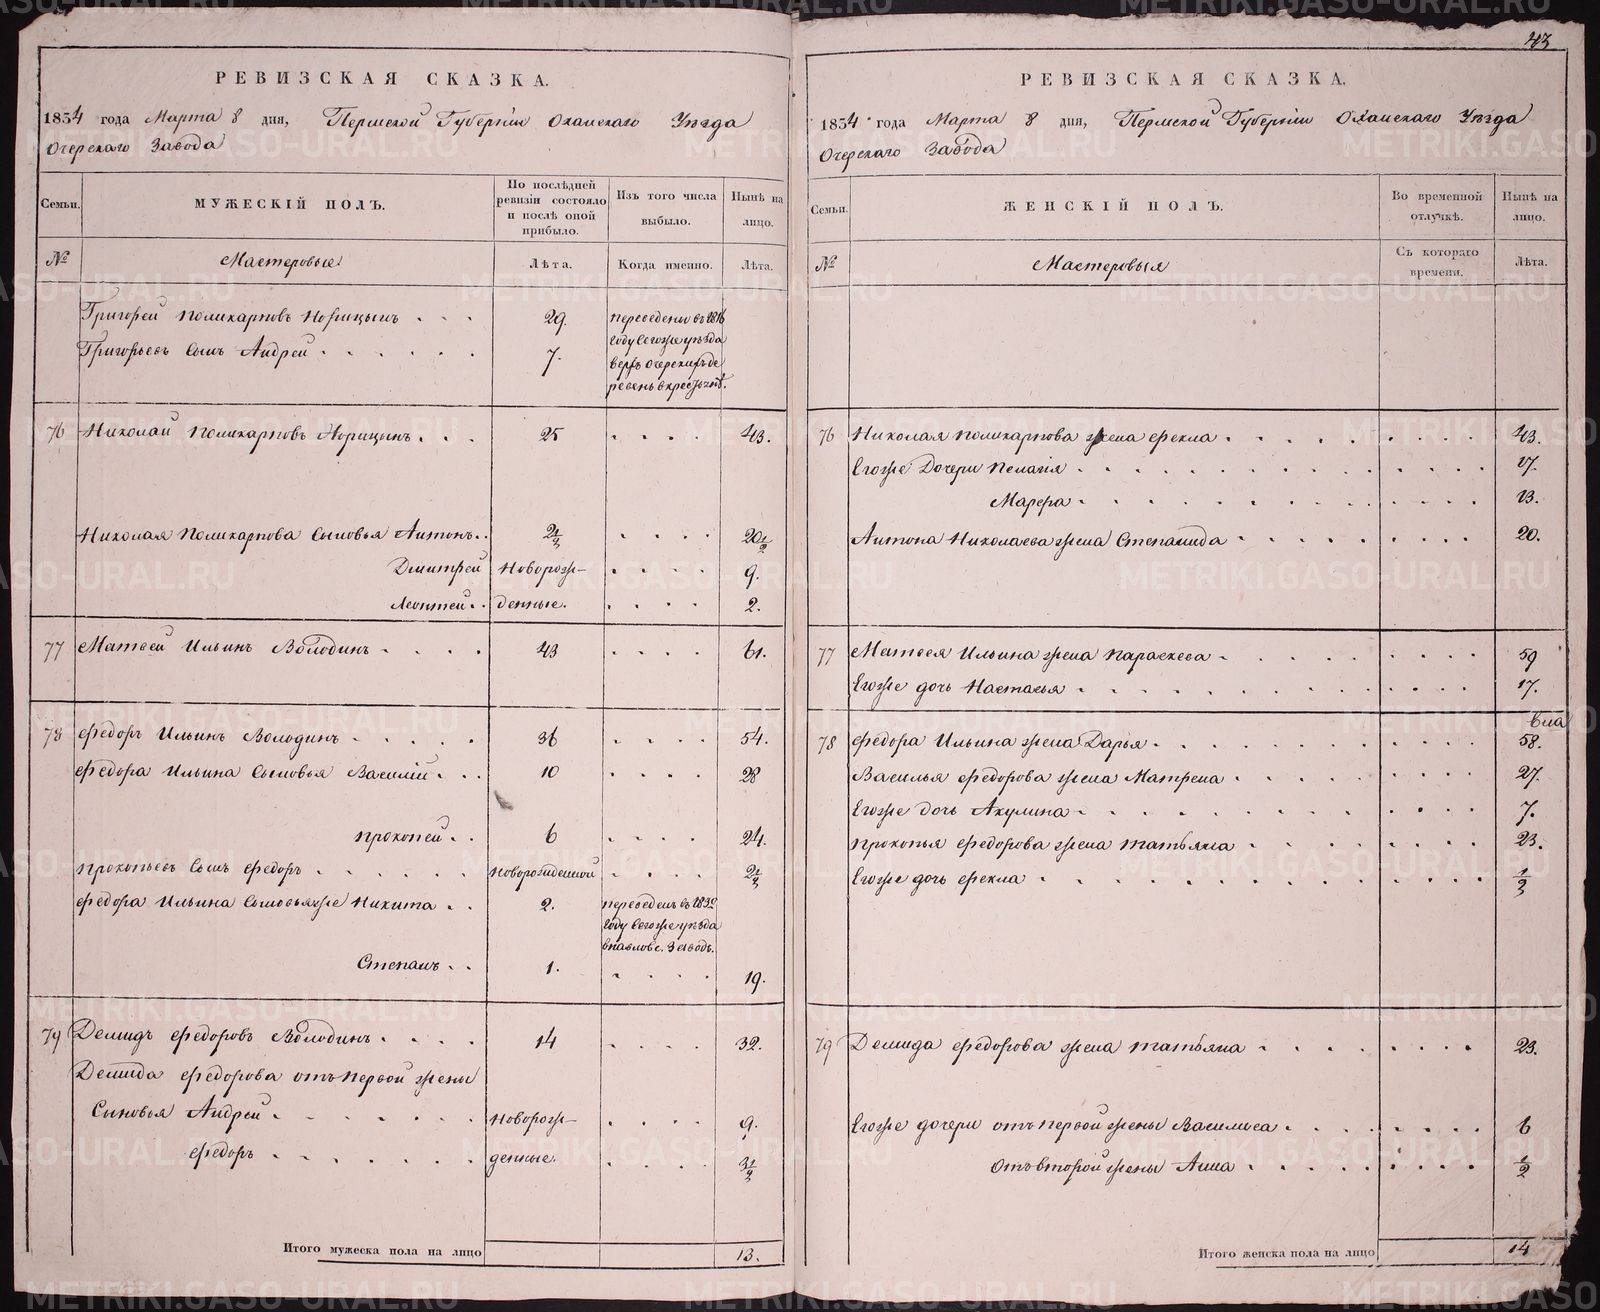 43
РЕВИЗСКАЯ СКАЗКА.
1834 года Марта 8 дня, Пермской Губернiи Оханскаго Уѣзда
Очерскаго Завода
Семьи.
МУЖЕСКIЙ ПОЛЪ.
По послѣдней
ревизiи состояло
и послѣ оной
прибыло.
Изъ того числа
выбыло.
Нынѣ на
лицо.
№
Мастеровые
Лѣта.
Когда именно.
Лѣта.
Григорей Поликарповъ 29. переведены въ 1816
Григорьевъ сынъ Андрей 7. году того же уѣзда
76 Николай Поликарповъ 25 43.
Николая Поликарпова сыновья Антонъ 2½ 20½
Дмитрей Новорож- 9.
Леонтей денные. 2.
77 Матвей Ильинъ Володинъ 43 61.
78 Федоръ Ильинъ Володинъ 36 54.
Федора Ильина сыновья Василiй 10 28
Прокопей 6 24.
Прокопьевъ сынъ Федоръ Новорожденной 2½
Федора Ильина сыновья же Никита 2. переведенъ въ 1832
году того же уѣзда
в Павловс. Заводъ.
Степанъ 1. 19.
79 Демидъ Федоровъ Володинъ 14 32.
Демида Федорова отъ первой жены
сыновья Андрей Новорож- 9.
Федоръ денные. 3½
Итого мужеска пола на лицо 13.
РЕВИЗСКАЯ СКАЗКА.
1834 года Марта 8 дня, Пермской Губернiи Оханскаго Уѣзда
Очерскаго Завода
Семьи.
ЖЕНСКIЙ ПОЛЪ.
Во временной
отлучкѣ.
Нынѣ на
лицо.
№
Мастеровыя
Съ котораго
времени.
Лѣта.
76 Николая Поликарпова жена Фекла 43.
Его же дочери Пелагiя 17.
Марфа 13.
Антона Николаева жена Степанида 20.
77 Матвея Ильина жена Параскева 59
Его же дочь Настасья 17.
78 Федора Ильина жена Дарья 58.
Василья Федорова жена Матрена 27.
Его же дочь Акулина 7.
Прокопья Федорова жена Татьяна 23.
Его же дочь Фекла ½
79 Демида Федорова жена Татьяна 23.
Его же дочери отъ первой жены Василиса 6
отъ второй жены Анна ½
Итого женска пола на лицо 14
METRIKI.GASO-URAL.RU